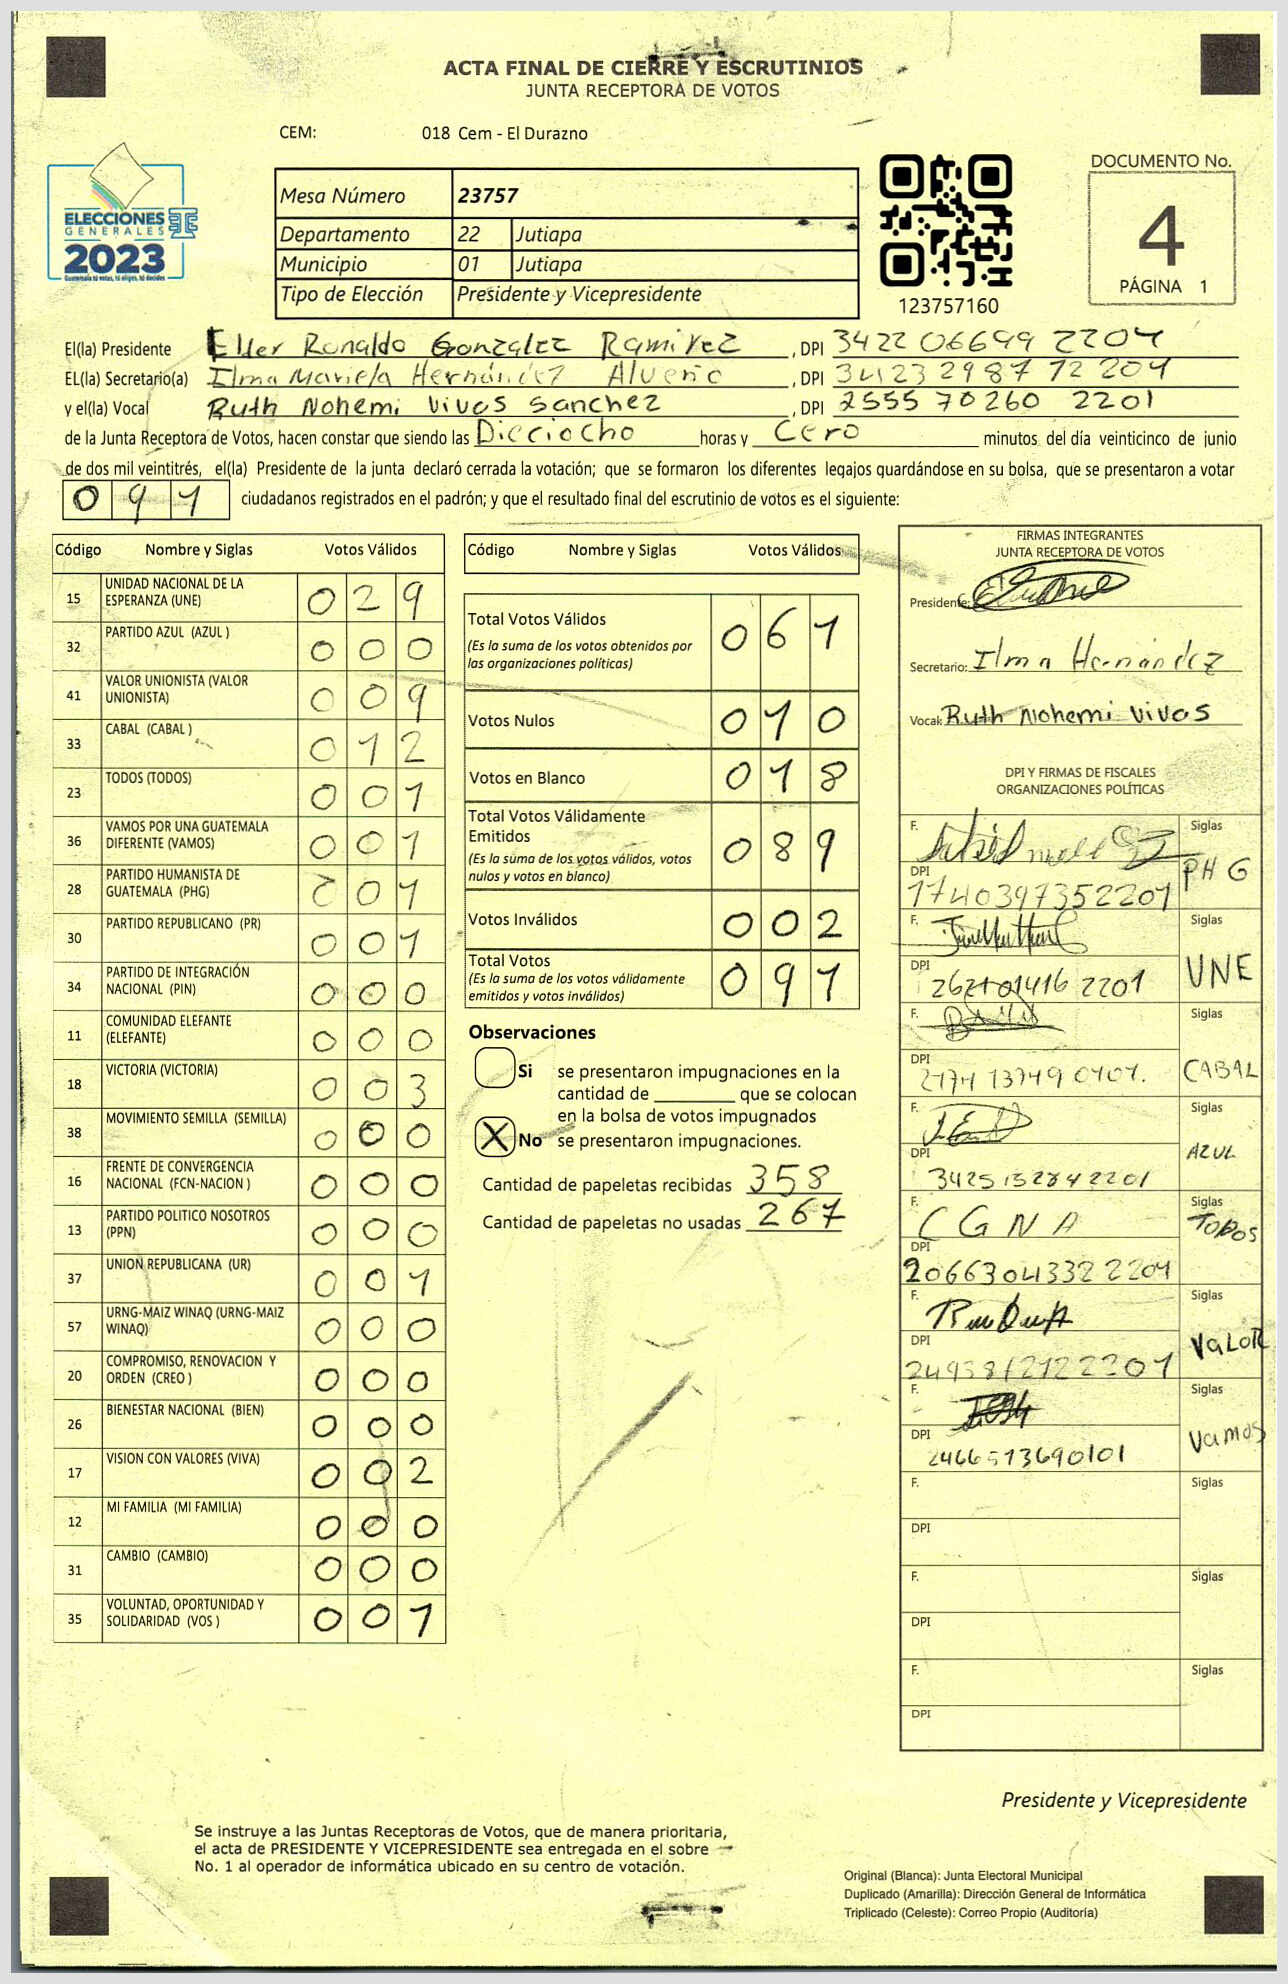 ACTA FINAL DE CIERRE Y ESCRUTINIOS
JUNTA RECEPTORA DE VOTOS
CEM: 018 Cem - El Durazno
ELECCIONES
GENERALES
2023
Guatemala tú votas, tú eliges, tú decides
Mesa Número 23757
Departamento 22 Jutiapa
Municipio 01 Jutiapa
Tipo de Elección Presidente y Vicepresidente
123757160
DOCUMENTO No.
4
PÁGINA 1
El(la) Presidente Elder Ronaldo Gonzalez Ramirez , DPI 3422 06699 2204
EL(la) Secretario(a) Ilma Mariela Hernández , DPI 34123 2987 12 204
y el(la) Vocal Ruth Nohemi Vivas Sanchez , DPI 2555 70260 2201
de la Junta Receptora de Votos, hacen constar que siendo las Dieciocho horas y Cero minutos del día veinticinco de junio
de dos mil veintitrés, el(la) Presidente de la junta declaró cerrada la votación; que se formaron los diferentes legajos guardándose en su bolsa, que se presentaron a votar
091 ciudadanos registrados en el padrón; y que el resultado final del escrutinio de votos es el siguiente:
Código Nombre y Siglas Votos Válidos
15 UNIDAD NACIONAL DE LA ESPERANZA (UNE) 029
32 PARTIDO AZUL (AZUL ) 000
41 VALOR UNIONISTA (VALOR UNIONISTA) 009
33 CABAL (CABAL ) 012
23 TODOS (TODOS) 001
36 VAMOS POR UNA GUATEMALA DIFERENTE (VAMOS) 001
28 PARTIDO HUMANISTA DE GUATEMALA (PHG) 001
30 PARTIDO REPUBLICANO (PR) 001
34 PARTIDO DE INTEGRACIÓN NACIONAL (PIN) 000
11 COMUNIDAD ELEFANTE (ELEFANTE) 000
18 VICTORIA (VICTORIA) 003
38 MOVIMIENTO SEMILLA (SEMILLA) 000
16 FRENTE DE CONVERGENCIA NACIONAL (FCN-NACION ) 000
13 PARTIDO POLITICO NOSOTROS (PPN) 000
37 UNION REPUBLICANA (UR) 001
57 URNG-MAIZ WINAQ (URNG-MAIZ WINAQ) 000
20 COMPROMISO, RENOVACION Y ORDEN (CREO ) 000
26 BIENESTAR NACIONAL (BIEN) 000
17 VISION CON VALORES (VIVA) 002
12 MI FAMILIA (MI FAMILIA) 000
31 CAMBIO (CAMBIO) 000
35 VOLUNTAD, OPORTUNIDAD Y SOLIDARIDAD (VOS ) 001
Código Nombre y Siglas Votos Válidos
Total Votos Válidos 061
(Es la suma de los votos obtenidos por
las organizaciones políticas)
Votos Nulos 010
Votos en Blanco 018
Total Votos Válidamente
Emitidos 089
(Es la suma de los votos válidos, votos
nulos y votos en blanco)
Votos Inválidos 002
Total Votos 091
(Es la suma de los votos válidamente
emitidos y votos inválidos)
Observaciones
Si se presentaron impugnaciones en la
cantidad de ________ que se colocan
en la bolsa de votos impugnados
X No se presentaron impugnaciones.
Cantidad de papeletas recibidas 358
Cantidad de papeletas no usadas 267
FIRMAS INTEGRANTES
JUNTA RECEPTORA DE VOTOS
Presidente:
Secretario: Ilma Hernández
Vocal: Ruth Nohemi Vivas
DPI Y FIRMAS DE FISCALES
ORGANIZACIONES POLÍTICAS
F. Siglas PHG
DPI 1740397352201
F. Siglas UNE
DPI 2201
F. Siglas CABAL
DPI
F. Siglas AZUL
DPI
F. CGNA Siglas TODOS
DPI 2066304332 2201
F. Siglas VALOR
DPI
F. Siglas Vamos
DPI
F. Siglas
DPI
F. Siglas
DPI
F. Siglas
DPI
Presidente y Vicepresidente
Se instruye a las Juntas Receptoras de Votos, que de manera prioritaria,
el acta de PRESIDENTE Y VICEPRESIDENTE sea entregada en el sobre
No. 1 al operador de informática ubicado en su centro de votación.
Original (Blanca): Junta Electoral Municipal
Duplicado (Amarilla): Dirección General de Informática
Triplicado (Celeste): Correo Propio (Auditoría)